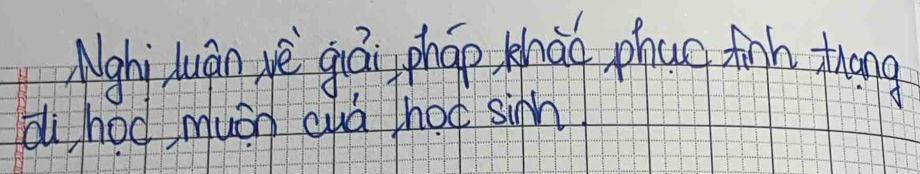 Nghị luận về giải pháp khắc phục tình trạng
đi học muộn của học sinh